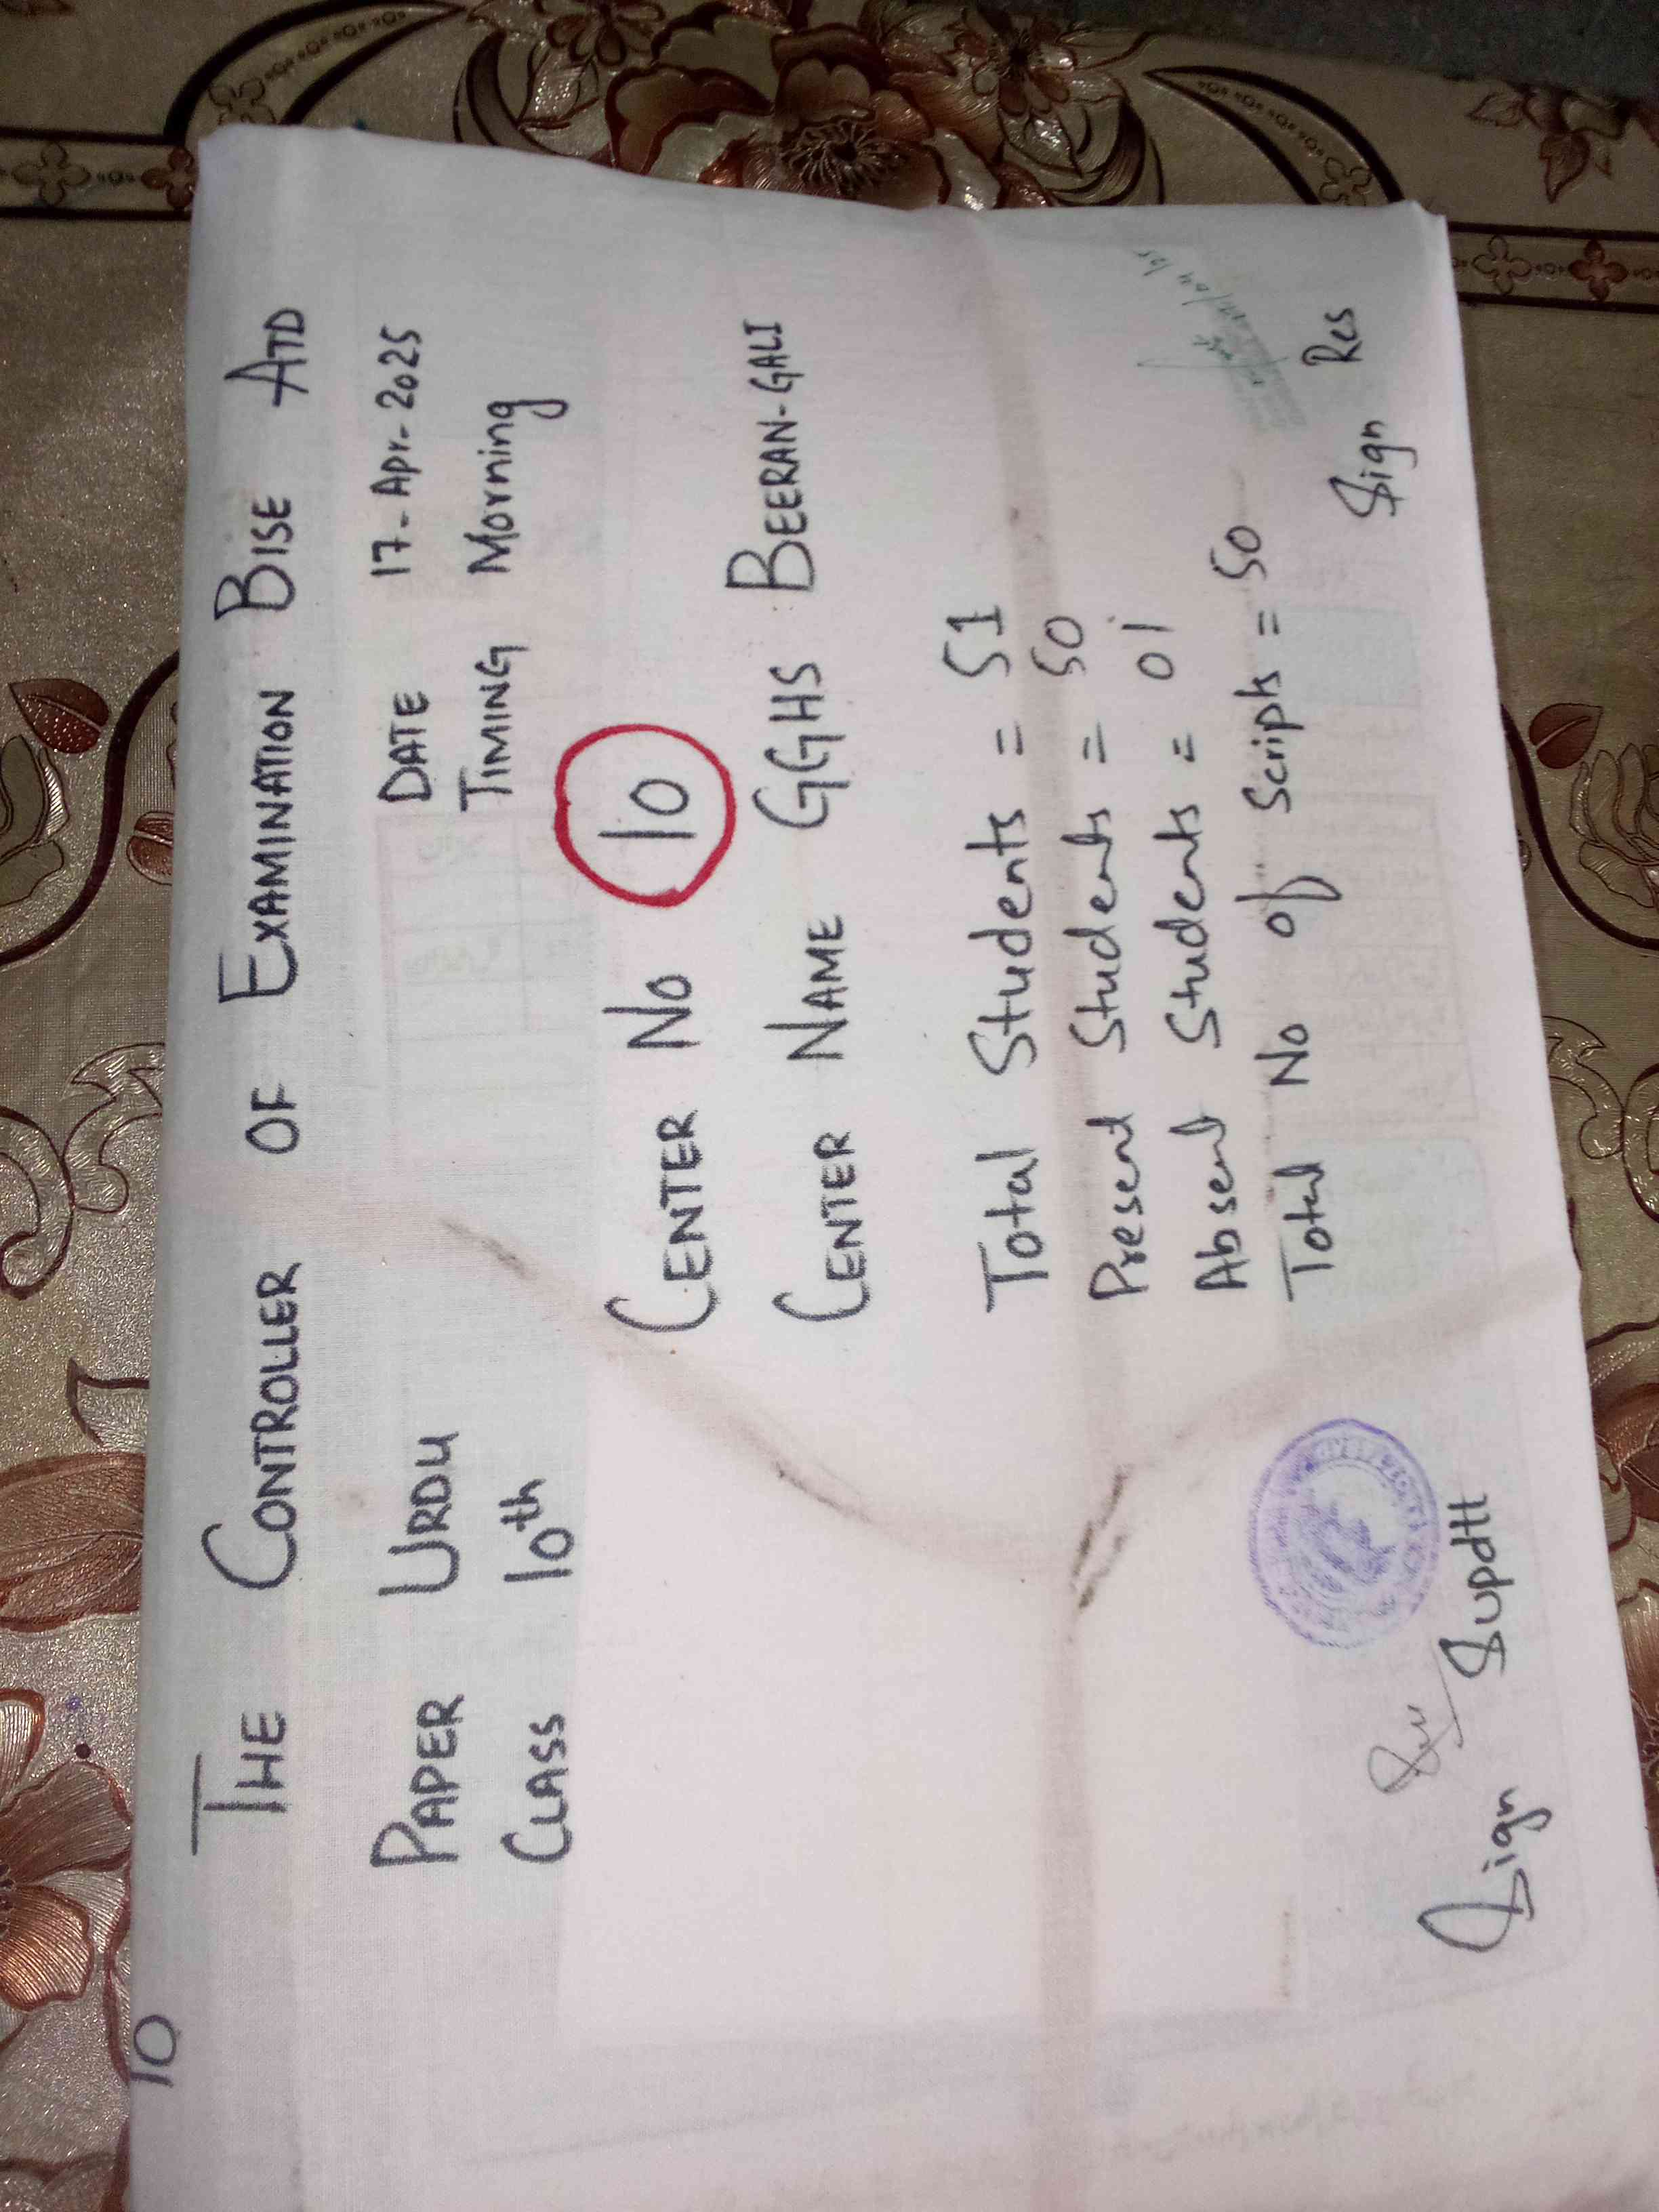 10
THE CONTROLLER OF EXAMINATION BISE ATD
PAPER URDU DATE 17-Apr-2025
CLASS 10th TIMING Morning
CENTER NO 10
CENTER NAME GGHS BEERAN-GALI
Total Students = 51
Present Students = 50
Absent Students = 01
Total No of Scripts = 50
Sign Supdtt Sign Res